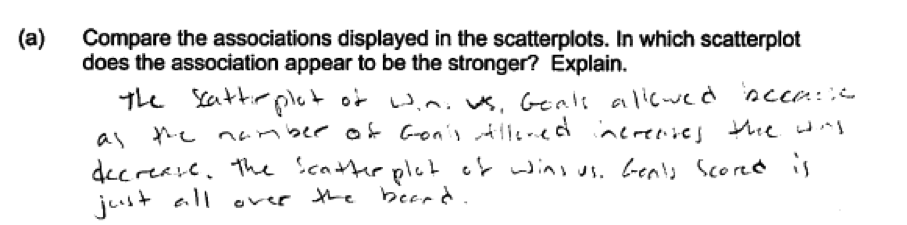 (a) Compare the associations displayed in the scatterplots. In which scatterplot
does the association appear to be the stronger? Explain.
The Scatterplot of Wins vs. Goals allowed because
as the number of Goals Allowed increases the wins
decrease. The Scatterplot of wins vs. Goals Scored is
just all over the board.